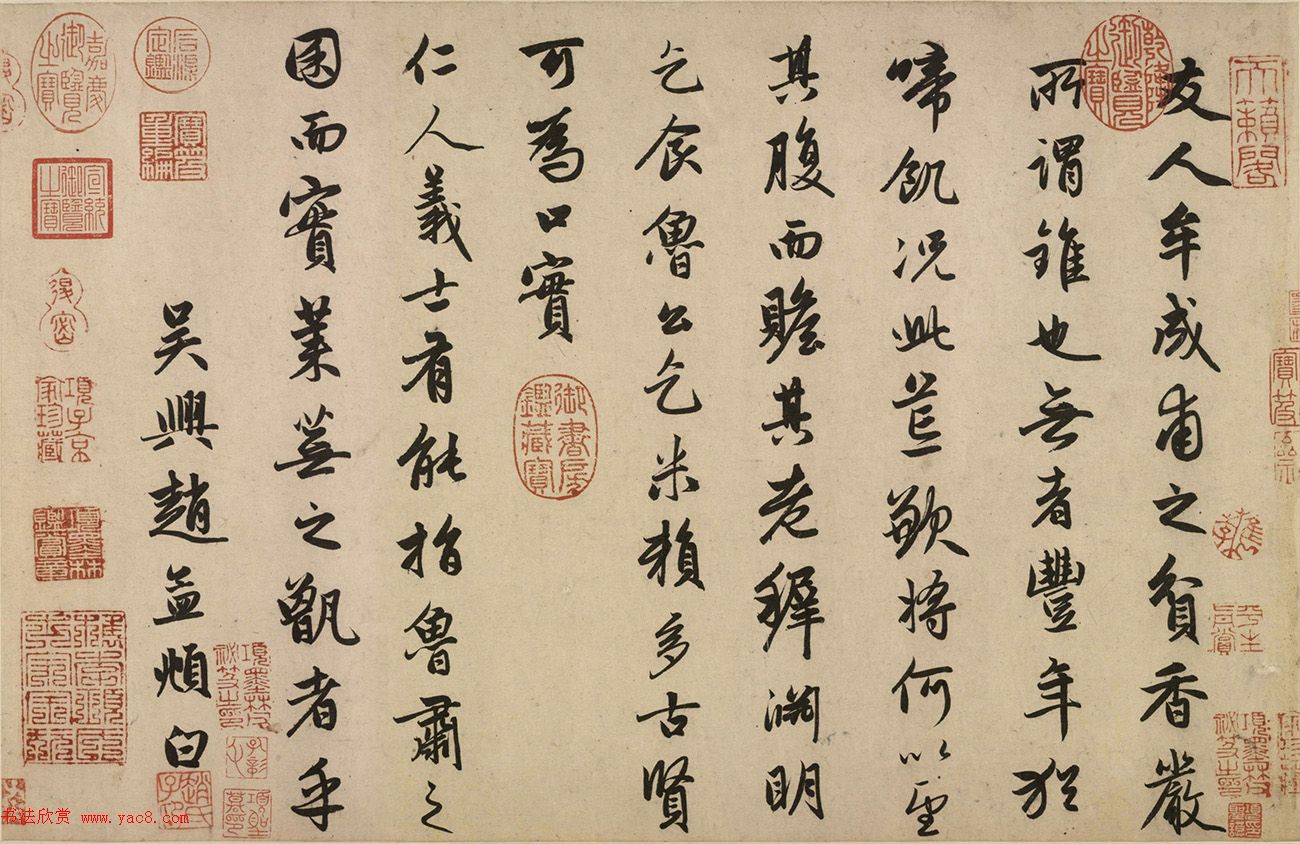 天籟閣
乾隆御覽之寶
友人牟成甫之貧香嚴
所謂錐也無者豐年猶
啼飢況此荒歉將何以望
其腹而贍其老穉淵明
乞食魯公乞米賴多古賢
可為口實
御書房鑑藏寶
仁人義士有能指魯肅之
囷而實萊蕪之甑者乎
吳興趙孟頫白
石渠定鑑
寶笈重編
嘉慶御覽之寶
宣統御覽之寶
項子京家珍藏
项墨林鑑賞章
书法欣赏 www.yac8.com